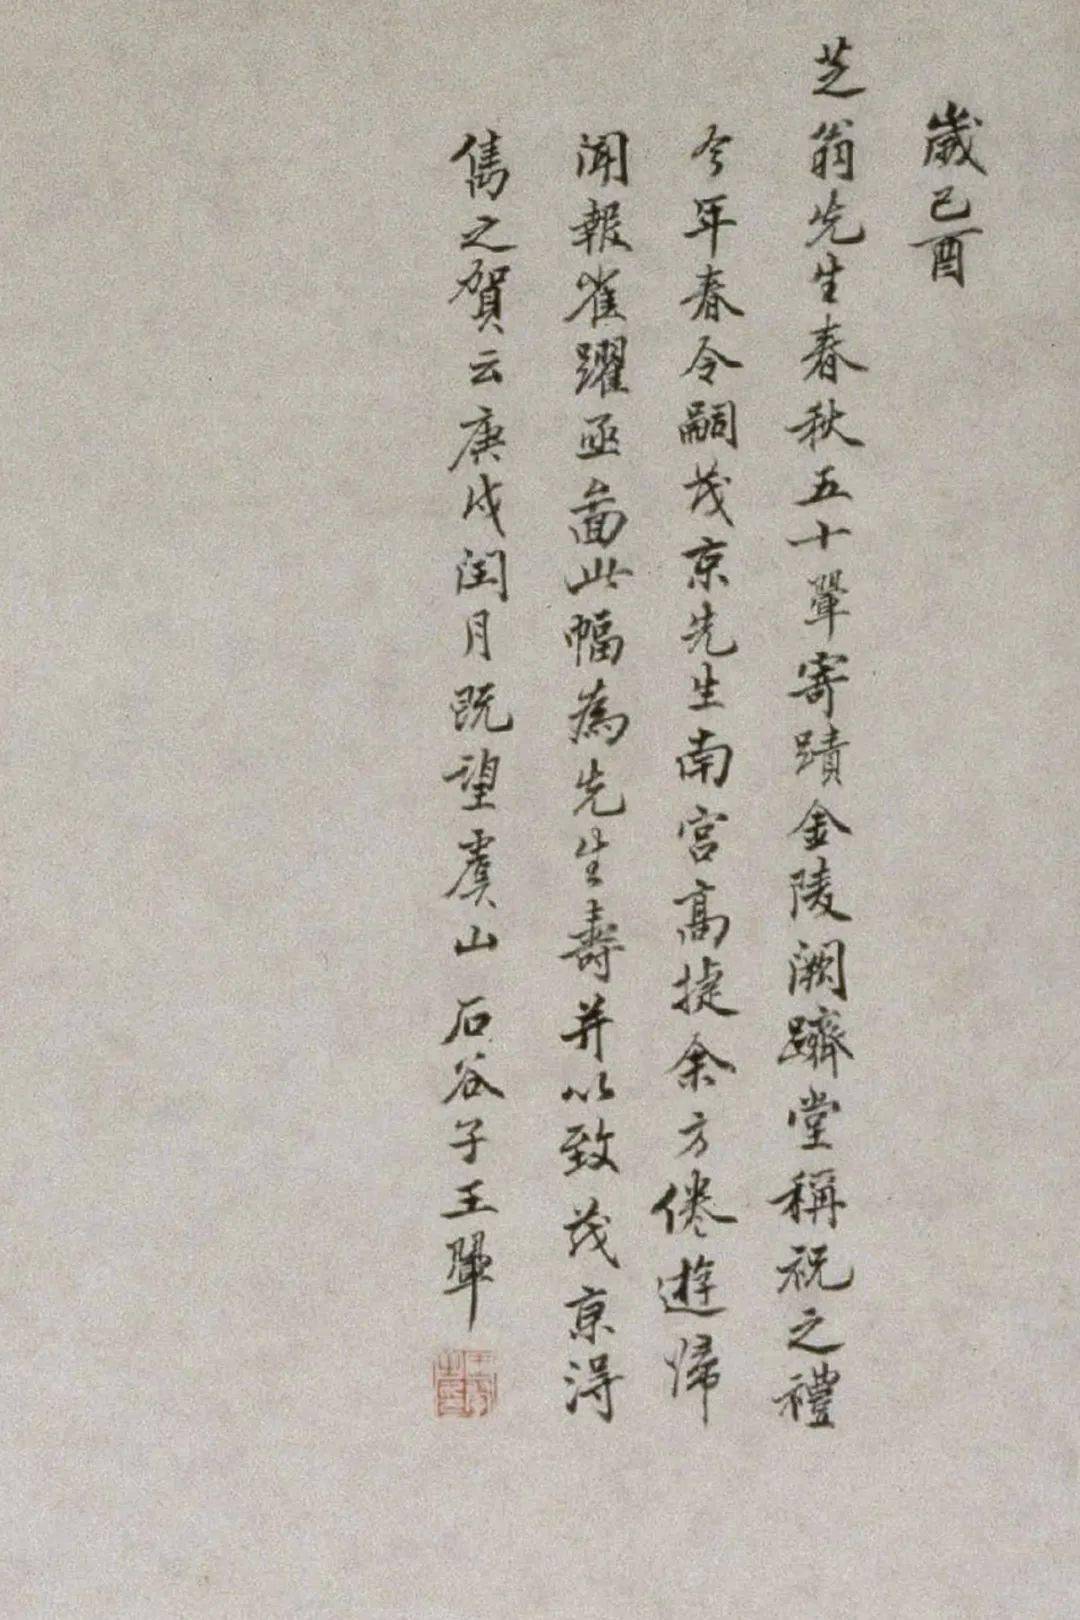 歲己酉
芝翁先生春秋五十翬寄蹟金陵闕躋堂稱祝之禮
今年春令嗣茂京先生南宮高捷余方倦遊歸
聞報雀躍亟畫此幅為先生壽并以致茂京得
雋之賀云庚戌閏月既望虞山石谷子王翬